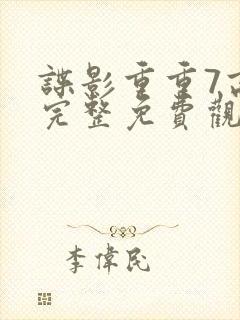 諜影重重7高
完整免費觀
李偉民